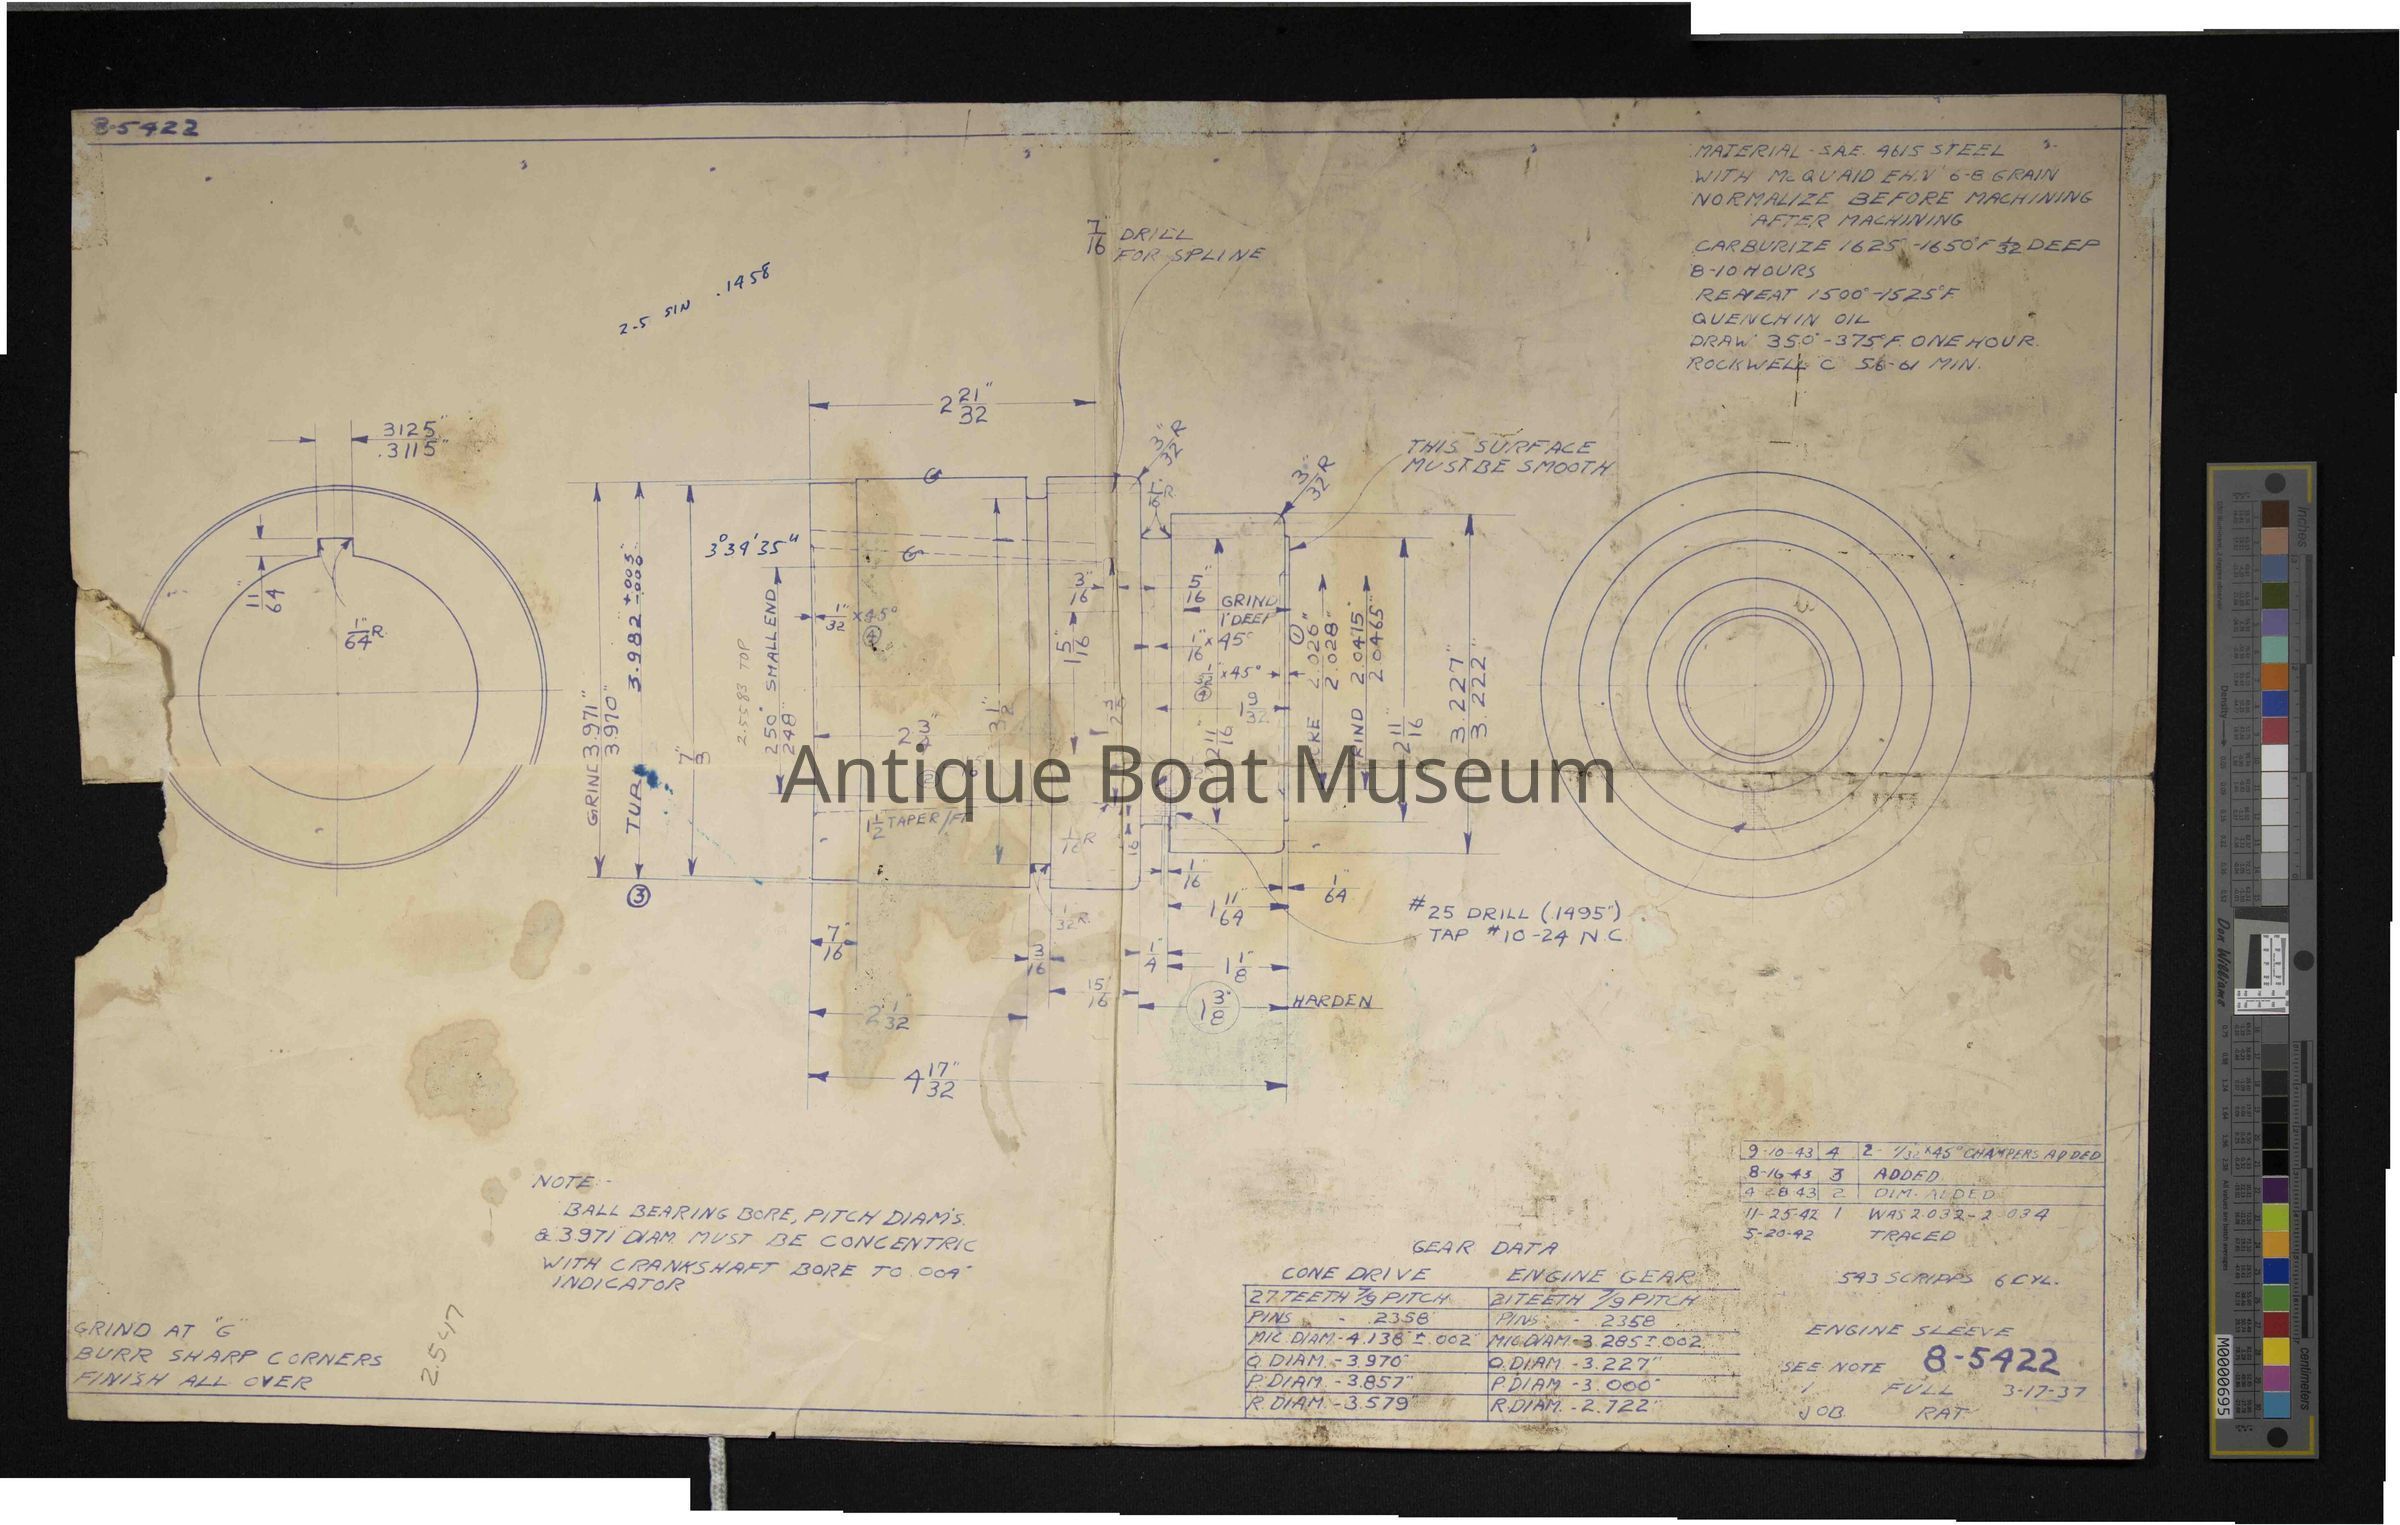 8-5422
MATERIAL - S.A.E. 4615 STEEL
WITH McQUAID EH.N 6-8 GRAIN
NORMALIZE BEFORE MACHINING
AFTER MACHINING
CARBURIZE 1625°-1650°F 1/32 DEEP
8-10 HOURS
REHEAT 1500°-1525°F
QUENCH IN OIL
DRAW 350°-375°F. ONE HOUR.
ROCKWELL C 56-61 MIN.
7/16 DRILL
FOR SPLINE
2-5 SIN .1458
2 21/32"
3125"
.3115"
3/32" R
3/32" R
THIS SURFACE
MUST BE SMOOTH
G
1/16" R
3°39'35"
G
11/64"
1/64" R
GRIND 3.971"
3.970"
TUR
3.982 +.005 -.000
③
2.5583 TOP
.250" SMALL END
.248"
1/32" x 45°
④
3/16"
1 5/16"
5/16"
GRIND
1" DEEP
1/16" x 45°
x 45°
④
1 9/32"
2 11/16"
①
2.026"
2.028"
GRIND 2.0475"
2.0465"
2 11/16
3.227"
3.222"
2 3/4"
3 1/2"
Antique Boat Museum
1 1/2" TAPER/FT
1/16 R
1/16
1 11/64"
1/64"
#25 DRILL (.1495")
TAP #10-24 N.C.
1/32 R.
7/16"
3/16
1/4
1 1/8"
15/16
1 3/8"
HARDEN
2 1/32"
4 17/32"
NOTE:-
BALL BEARING BORE, PITCH DIAM'S.
& 3.971" DIAM. MUST BE CONCENTRIC
WITH CRANKSHAFT BORE TO .004"
INDICATOR
GRIND AT "G"
BURR SHARP CORNERS
FINISH ALL OVER
2.547
9-10-43 4 2- 1/32 x 45° CHAMFERS ADDED
8-16-43 3 ADDED
4-28-43 2 DIM. ADDED
11-25-42 1 WAS 2.032-2.034
5-20-42 TRACED
GEAR DATA
CONE DRIVE ENGINE GEAR
27 TEETH 7/9 PITCH 21 TEETH 7/9 PITCH
PINS - .2358" PINS - .2358
MIC. DIAM.-4.138" ±.002" MIC. DIAM.-3.285 ±.002
O. DIAM. -3.970" O. DIAM. -3.227"
P. DIAM. -3.857" P. DIAM -3.000"
R. DIAM. -3.579" R. DIAM. -2.722"
543 SCRIPPS 6 CYL.
ENGINE SLEEVE
SEE NOTE 8-5422
1 FULL 3-17-37
JOB RAT
inches
Density
Don Williams
centimeters
M0000695